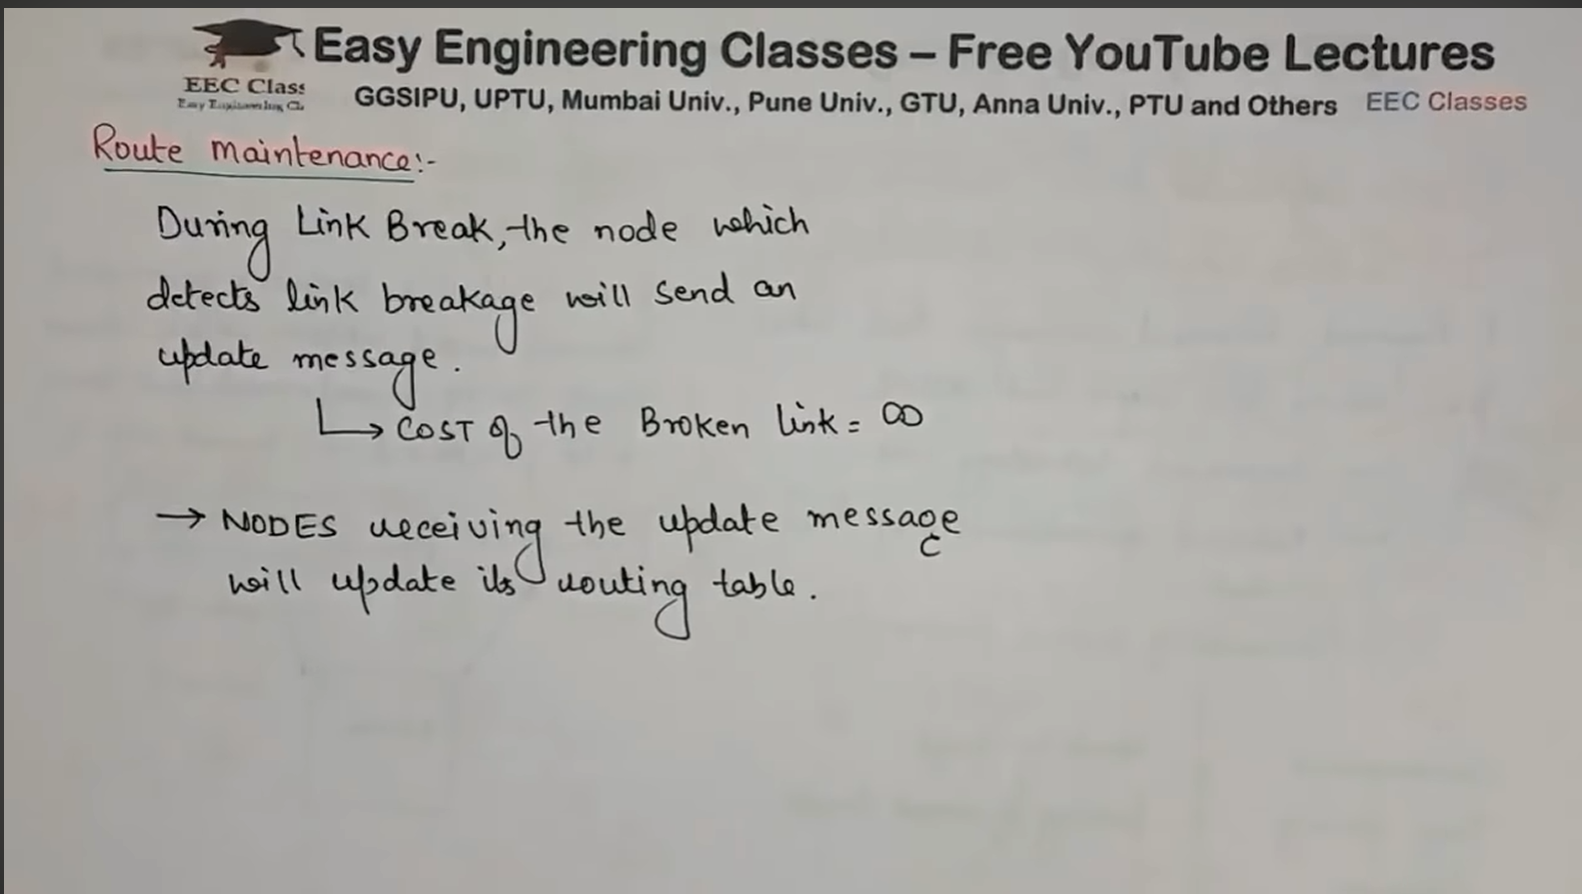 Easy Engineering Classes – Free YouTube Lectures
EEC Class
GGSIPU, UPTU, Mumbai Univ., Pune Univ., GTU, Anna Univ., PTU and Others EEC Classes
Route maintenance:-
During Link Break, the node which
detects link breakage will send an
update message.
↳ COST of the Broken link = ∞
→ NODES receiving the update message
will update its routing table.